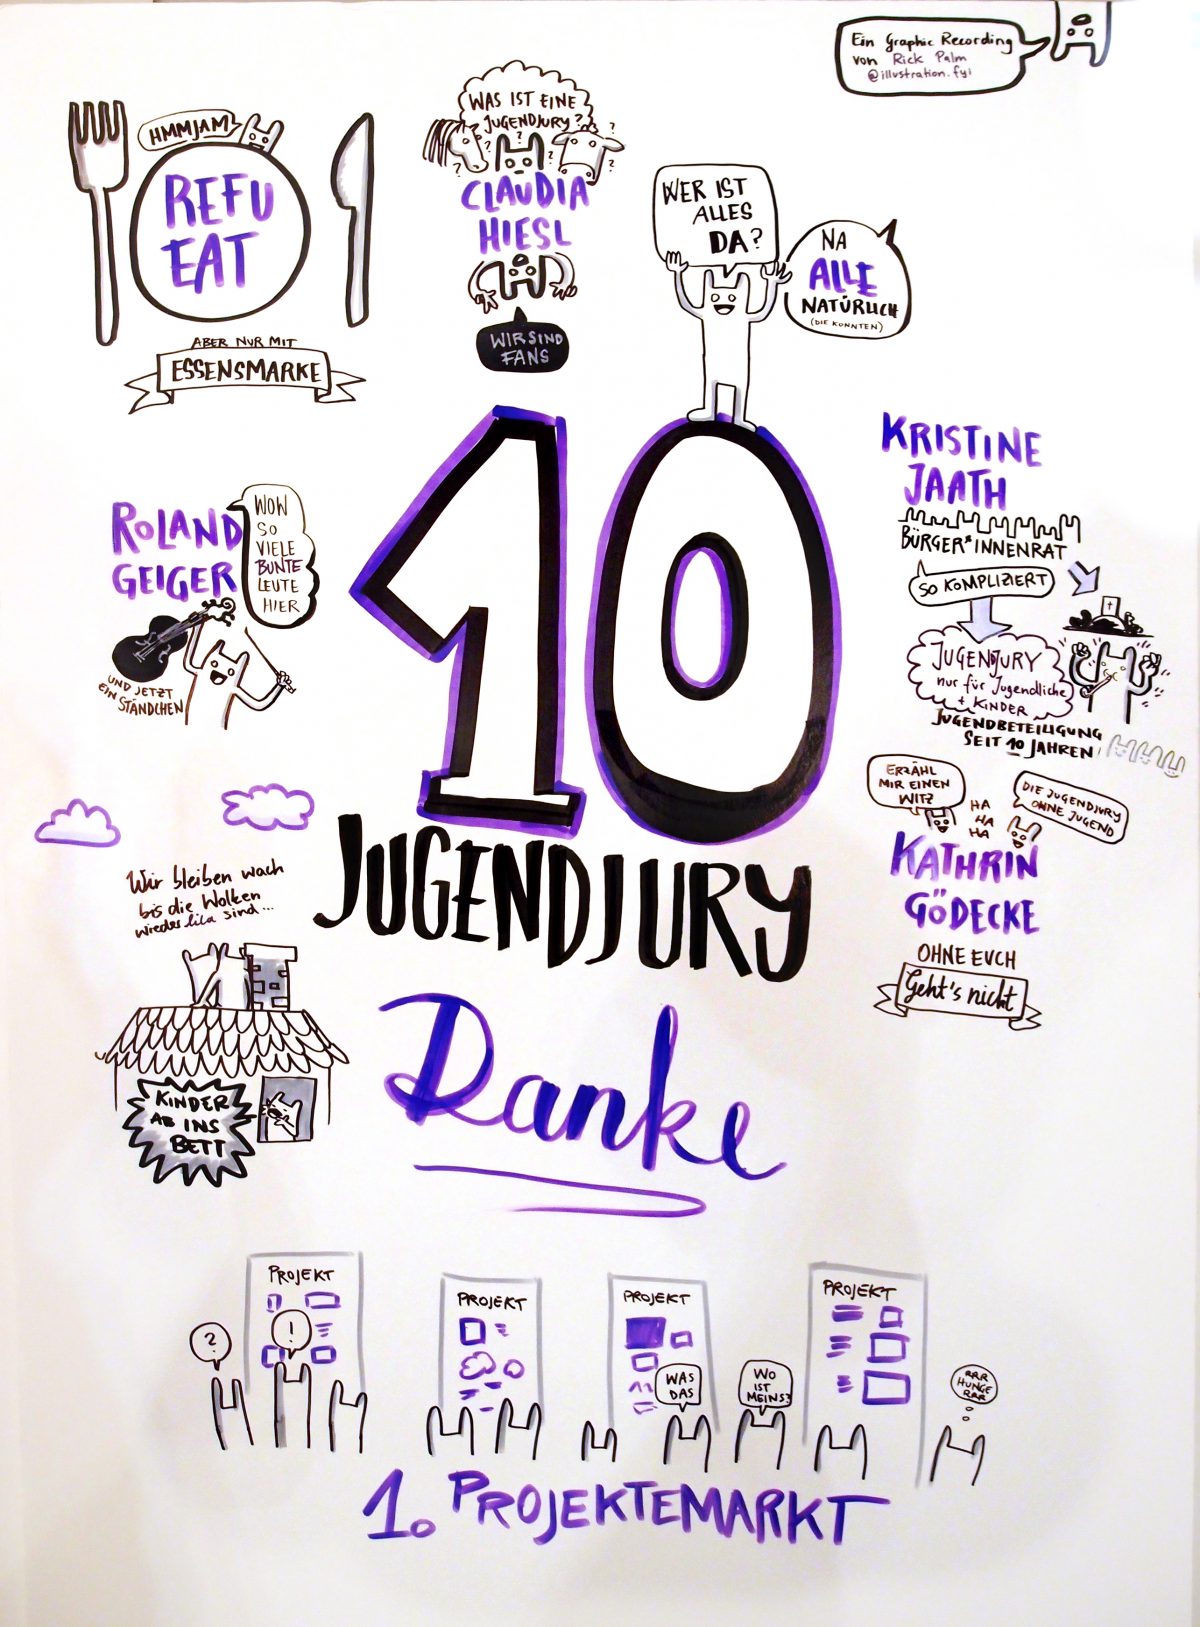 Ein Graphic Recording
von Rick Palm
@illustration.fyi
HMMJAM
REFU
EAT
ABER NUR MIT
ESSENSMARKE
WAS IST EINE
JUGENDJURY?
CLAUDIA
HIESL
WIR SIND
FANS
WER IST
ALLES
DA?
NA
ALLE
NATÜRLICH
(DIE KONNTEN)
KRISTINE
JAATH
BÜRGER*INNENRAT
SO KOMPLIZIERT
JUGENDJURY
nur für Jugendliche
+ KINDER
JUGENDBETEILIGUNG
SEIT 10 JAHREN
ROLAND
GEIGER
WOW
SO
VIELE
BUNTE
LEUTE
HIER
UND JETZT
EIN STÄNDCHEN
10
JUGENDJURY
Danke
ERZÄHL
MIR EINEN
WITZ
HA
HA
HA
DIE JUGENDJURY
OHNE JUGEND
KATHRIN
GÖDECKE
OHNE EUCH
Geht's nicht
Wir bleiben wach
bis die Wolken
wieder lila sind...
KINDER
AB INS
BETT
PROJEKT
?
!
PROJEKT
PROJEKT
WAS
DAS
WO
IST
MEINS?
PROJEKT
RRR
HUNGE
RRR
1. PROJEKTEMARKT